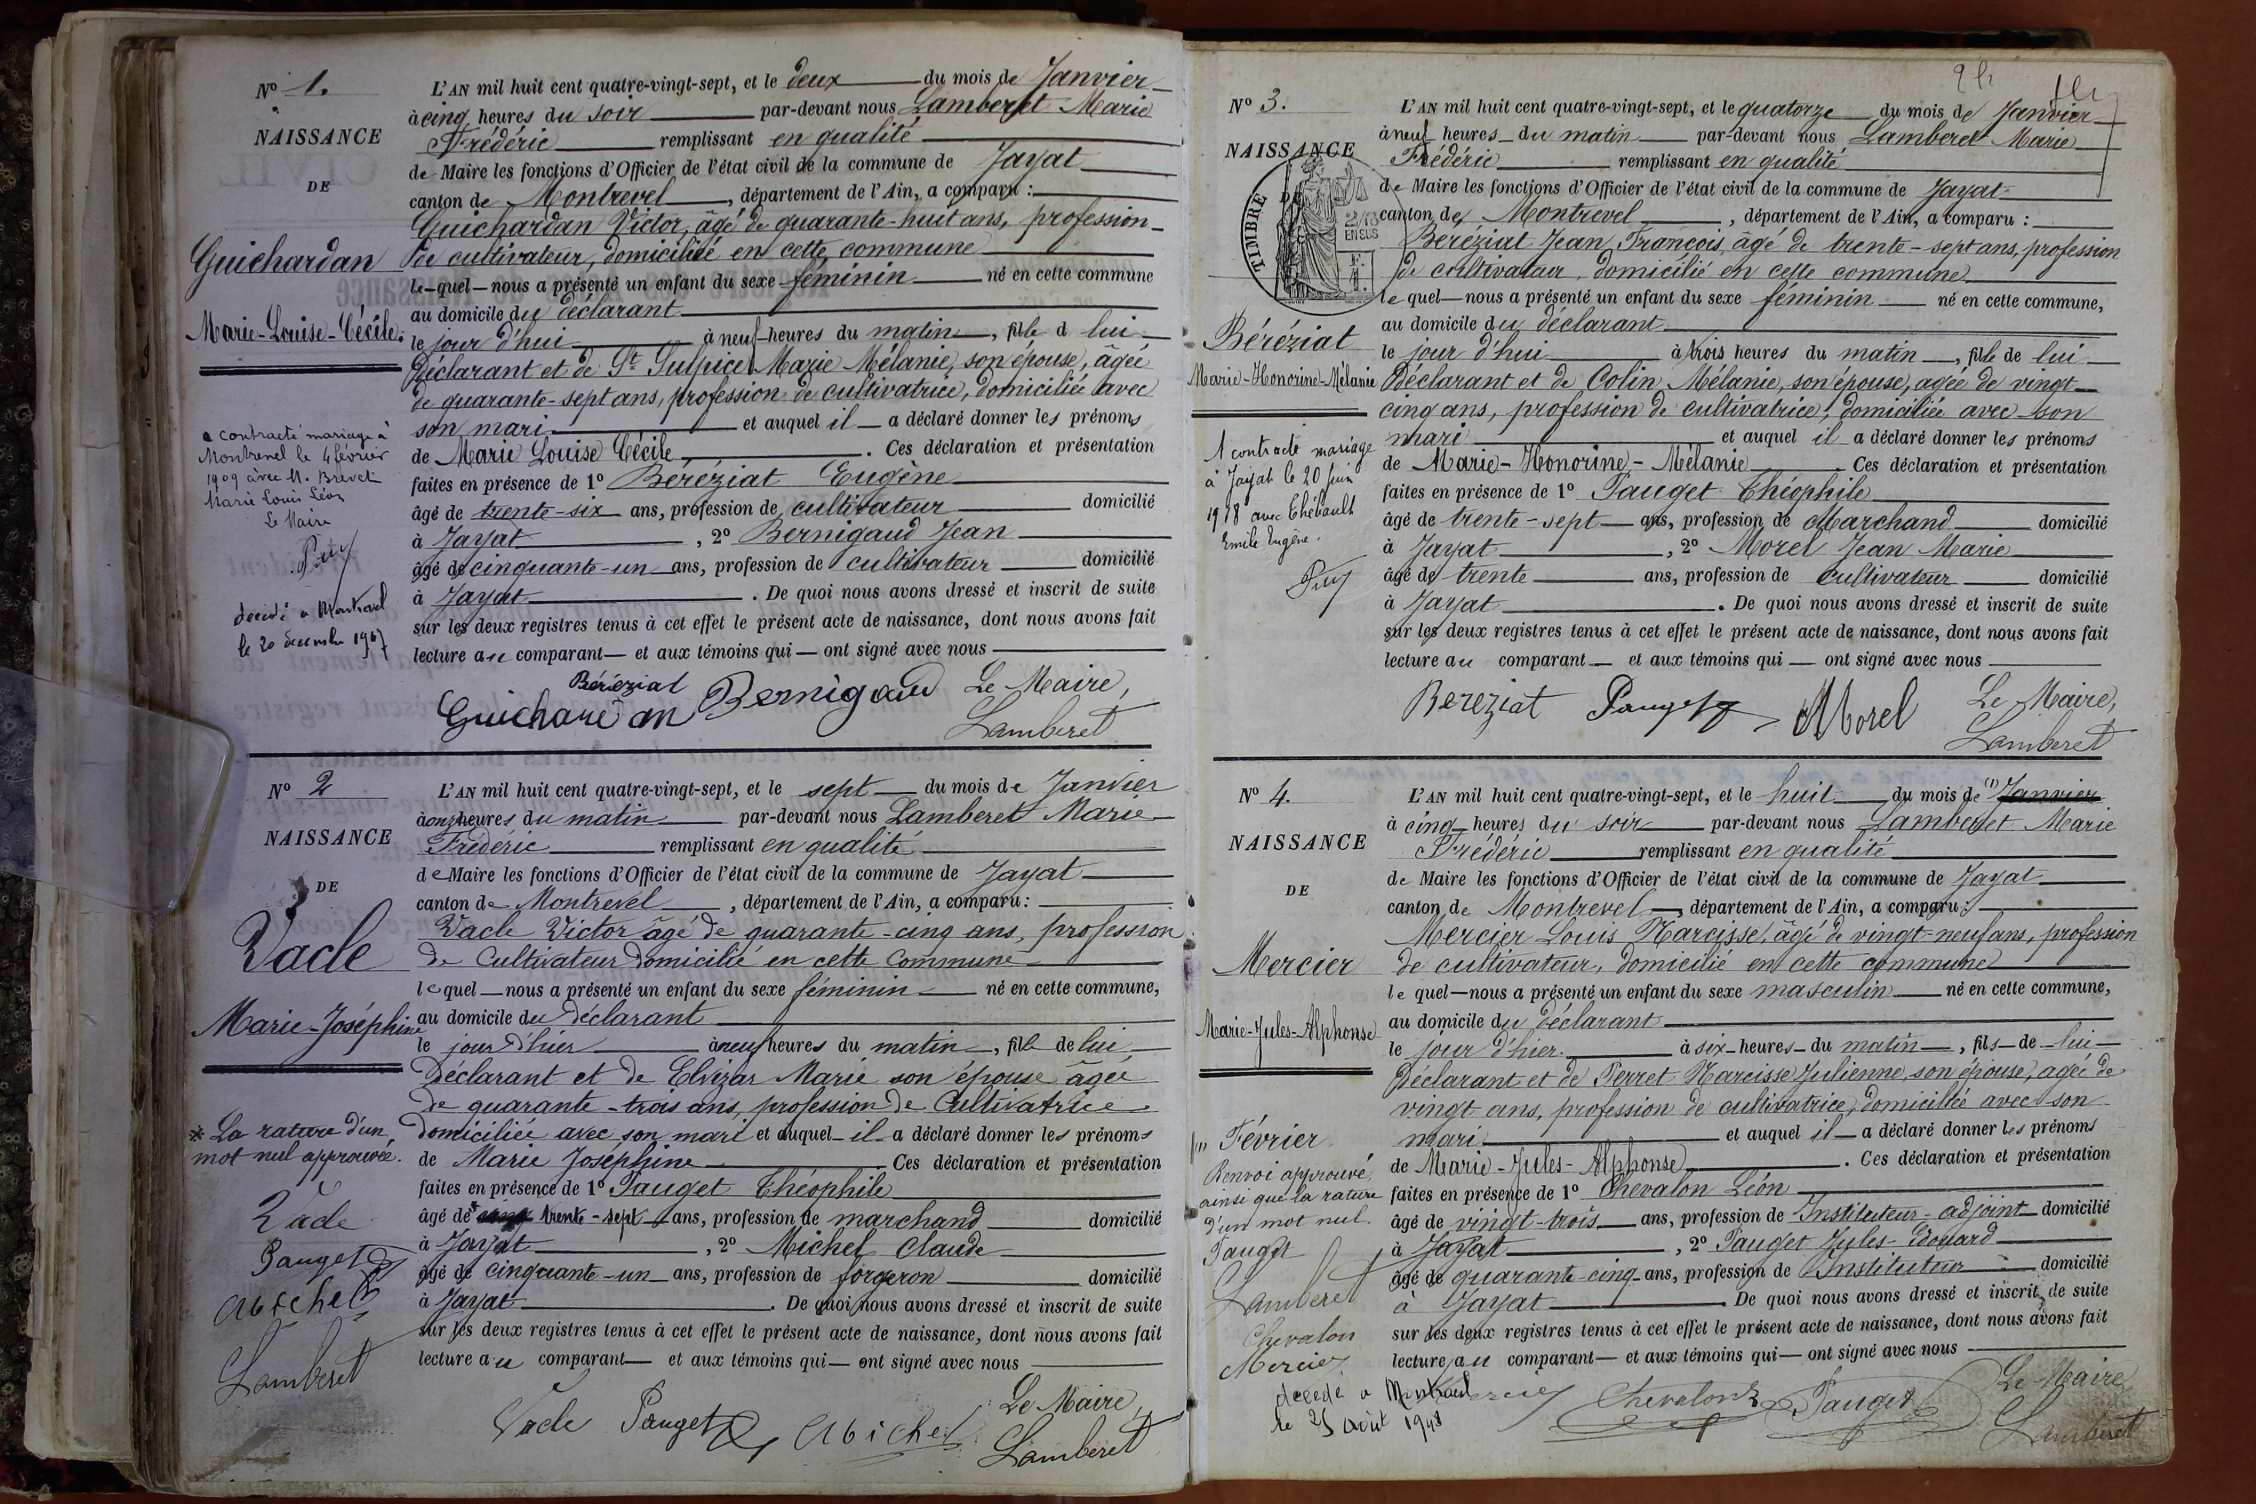 No 1.
NAISSANCE
DE
Guichardan
Marie-Louise-Cécile.
a contracté mariage à
Montrevel le 4 février
1909 avec M. Brevet
Marie Louis Léon
Le Maire
Puy
décédé a Montrevel
le 20 décembre 1967
L'AN mil huit cent quatre-vingt-sept, et le deux du mois de Janvier
à cinq heures du soir par-devant nous Lamberet Marie
Frédéric remplissant en qualité
de Maire les fonctions d'Officier de l'état civil de la commune de Jayat
canton de Montrevel, département de l'Ain, a comparu :
Guichardan Victor, âgé de quarante-huit ans, profession
de cultivateur, domicilié en cette commune
lequel nous a présenté un enfant du sexe féminin né en cette commune
au domicile du déclarant
le jour d'hui à neuf heures du matin, fille d lui
déclarant et de St Sulpice Marie Mélanie, son épouse, âgée
de quarante-sept ans, profession de cultivatrice, domiciliée avec
son mari et auquel il a déclaré donner les prénoms
de Marie Louise Cécile. Ces déclaration et présentation
faites en présence de 1o Béréziat Eugène
âgé de trente-six ans, profession de cultivateur domicilié
à Jayat, 2o Bernigaud Jean
âgé de cinquante-un ans, profession de cultivateur domicilié
à Jayat. De quoi nous avons dressé et inscrit de suite
sur les deux registres tenus à cet effet le présent acte de naissance, dont nous avons fait
lecture au comparant et aux témoins qui ont signé avec nous
Béréziat
Guichardan Bernigaud Le Maire,
Lamberet
No 2
NAISSANCE
DE
Vacle
Marie-Joséphine
* La rature d'un
mot nul approuvée.
Vacle
Pauget
Michel
Lamberet
L'AN mil huit cent quatre-vingt-sept, et le sept du mois de Janvier
à onze heures du matin par-devant nous Lamberet Marie
Frédéric remplissant en qualité
de Maire les fonctions d'Officier de l'état civil de la commune de Jayat
canton de Montrevel, département de l'Ain, a comparu :
Vacle Victor âgé de quarante-cinq ans, profession
de Cultivateur domicilié en cette commune
lequel nous a présenté un enfant du sexe féminin né en cette commune,
au domicile du déclarant
le jour d'hier à neuf heures du matin, fille de lui
déclarant et de Elvizar Marie son épouse âgée
de quarante-trois ans, profession de Cultivatrice
domiciliée avec son mari et auquel il a déclaré donner les prénoms
de Marie Joséphine Ces déclaration et présentation
faites en présence de 1o Pauget Théophile
âgé de * trente-sept ans, profession de marchand domicilié
à Jayat, 2o Michel Claude
âgé de cinquante-un ans, profession de forgeron domicilié
à Jayat. De quoi nous avons dressé et inscrit de suite
sur les deux registres tenus à cet effet le présent acte de naissance, dont nous avons fait
lecture au comparant et aux témoins qui ont signé avec nous
Vacle Pauget Michel Le Maire,
Lamberet
No 3.
NAISSANCE
DE
TIMBRE
2/10
EN SUS
Béréziat
Marie-Honorine-Mélanie
A contracté mariage
à Jayat le 20 juin
1918 avec Thébault
Emile Eugène.
Puy
L'AN mil huit cent quatre-vingt-sept, et le quatorze du mois de Janvier
à neuf heures du matin par-devant nous Lamberet Marie
Frédéric remplissant en qualité
de Maire les fonctions d'Officier de l'état civil de la commune de Jayat
canton de Montrevel, département de l'Ain, a comparu :
Béréziat Jean François, âgé de trente-sept ans, profession
de cultivateur, domicilié en cette commune
lequel nous a présenté un enfant du sexe féminin né en cette commune,
au domicile du déclarant
le jour d'hui à trois heures du matin, fille de lui
déclarant et de Colin Mélanie, son épouse, agée de vingt
cinq ans, profession de cultivatrice, domiciliée avec son
mari et auquel il a déclaré donner les prénoms
de Marie-Honorine-Mélanie. Ces déclaration et présentation
faites en présence de 1o Pauget Théophile
âgé de trente-sept ans, profession de Marchand domicilié
à Jayat, 2o Morel Jean Marie
âgé de trente ans, profession de cultivateur domicilié
à Jayat. De quoi nous avons dressé et inscrit de suite
sur les deux registres tenus à cet effet le présent acte de naissance, dont nous avons fait
lecture au comparant et aux témoins qui ont signé avec nous
Bereziat Pauget Morel Le Maire,
Lamberet
No 4.
NAISSANCE
DE
Mercier
Marie-Jules-Alphonse
(1) Février
Renvoi approuvé,
ainsi que la rature
d'un mot nul.
Pauget
Lamberet
Chevalon
Mercier
décédé a Montrevel
le 25 août 1948
L'AN mil huit cent quatre-vingt-sept, et le huit du mois de (1) Janvier
à cinq heures du soir par-devant nous Lamberet Marie
Frédéric remplissant en qualité
de Maire les fonctions d'Officier de l'état civil de la commune de Jayat
canton de Montrevel, département de l'Ain, a comparu :
Mercier Louis Narcisse, âgé de vingt-neuf ans, profession
de cultivateur, domicilié en cette commune
lequel nous a présenté un enfant du sexe masculin né en cette commune,
au domicile du déclarant
le jour d'hier à six heures du matin, fils de lui
déclarant et de Perret Narcisse Julienne, son épouse, agée de
vingt ans, profession de cultivatrice, domiciliée avec son
mari et auquel il a déclaré donner les prénoms
de Marie-Jules-Alphonse. Ces déclaration et présentation
faites en présence de 1o Chevalon Léon
âgé de vingt-trois ans, profession de Instituteur-adjoint domicilié
à Jayat, 2o Pauget Jules Edouard
âgé de quarante-cinq ans, profession de Instituteur domicilié
à Jayat. De quoi nous avons dressé et inscrit de suite
sur les deux registres tenus à cet effet le présent acte de naissance, dont nous avons fait
lecture au comparant et aux témoins qui ont signé avec nous
Mercier Chevalon Pauget Le Maire
Lamberet